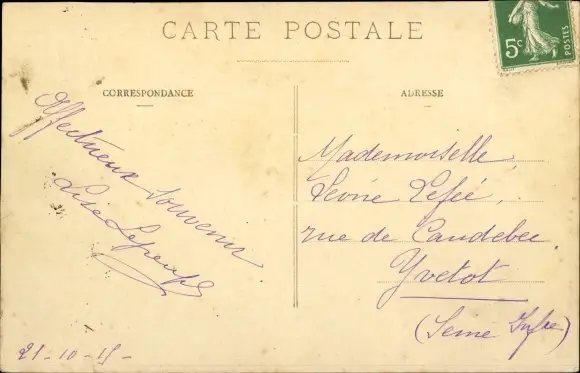 CARTE POSTALE
5c
POSTES
CORRESPONDANCE
ADRESSE
Affectueux Souvenir
Lise
21-10-15-
Mademoiselle
Léone
rue de Caudebec
Yvetot
(Seine Infre)